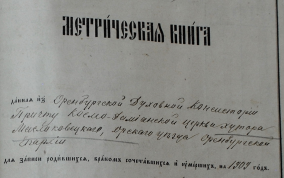 МЕТРИЧЕСКАЯ КНИГА
данная из Оренбургской Духовной Консистории
Причту Космо-Дамианской церкви хутора
Орскаго уѣзда Оренбургской
Епархіи
для записи родившихся, бракомъ сочетавшихся и умершихъ, на 1909 годъ.